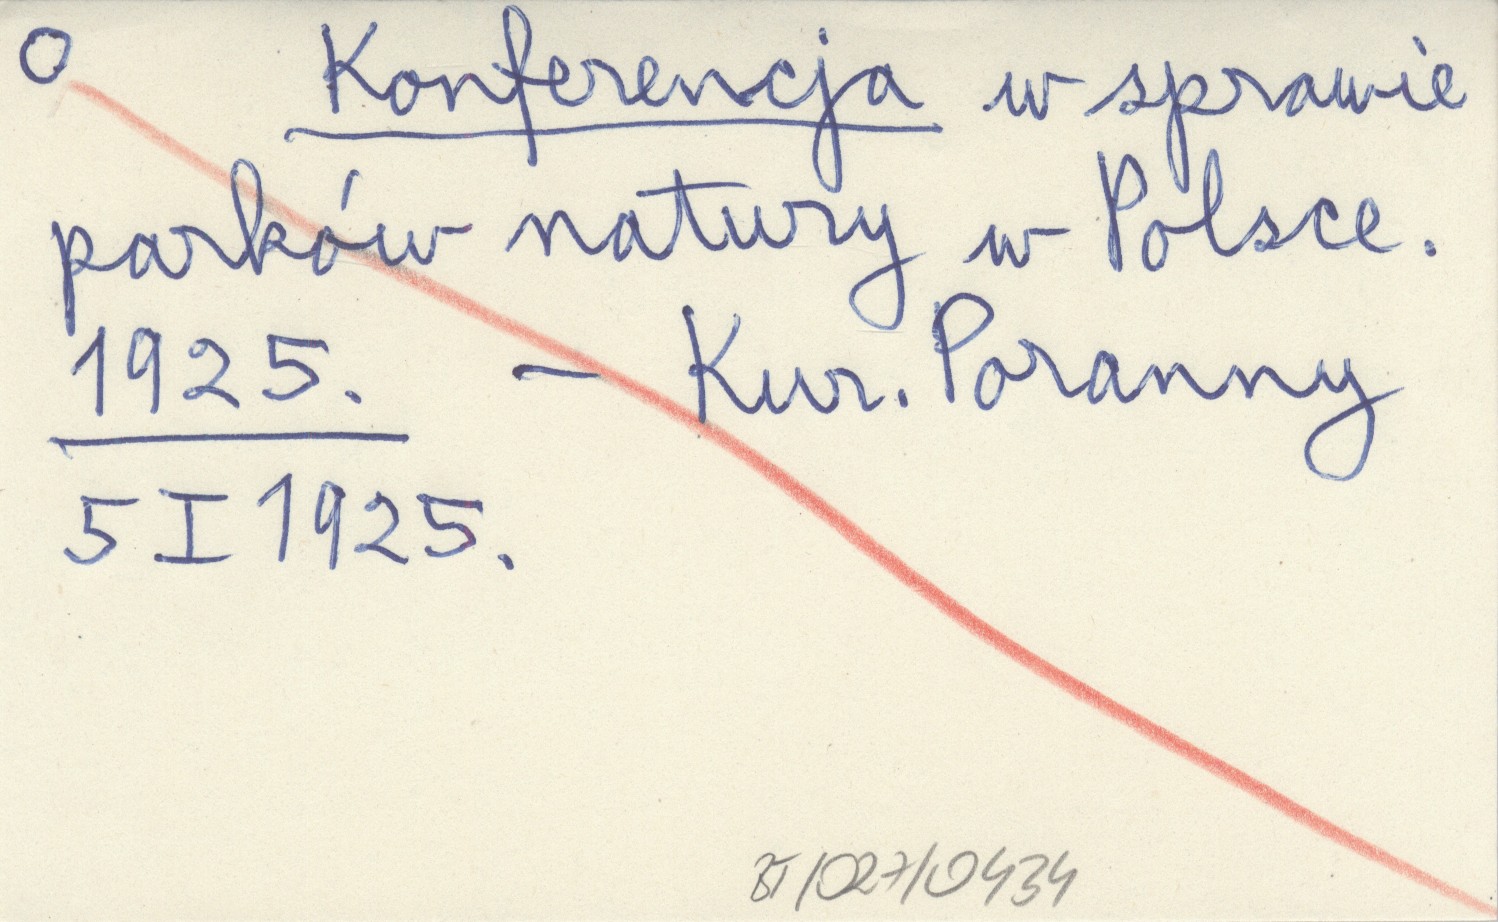 O Konferencja w sprawie
parków natury w Polsce.
1925. – Kur. Poranny
5 I 1925.
BT/027/0434